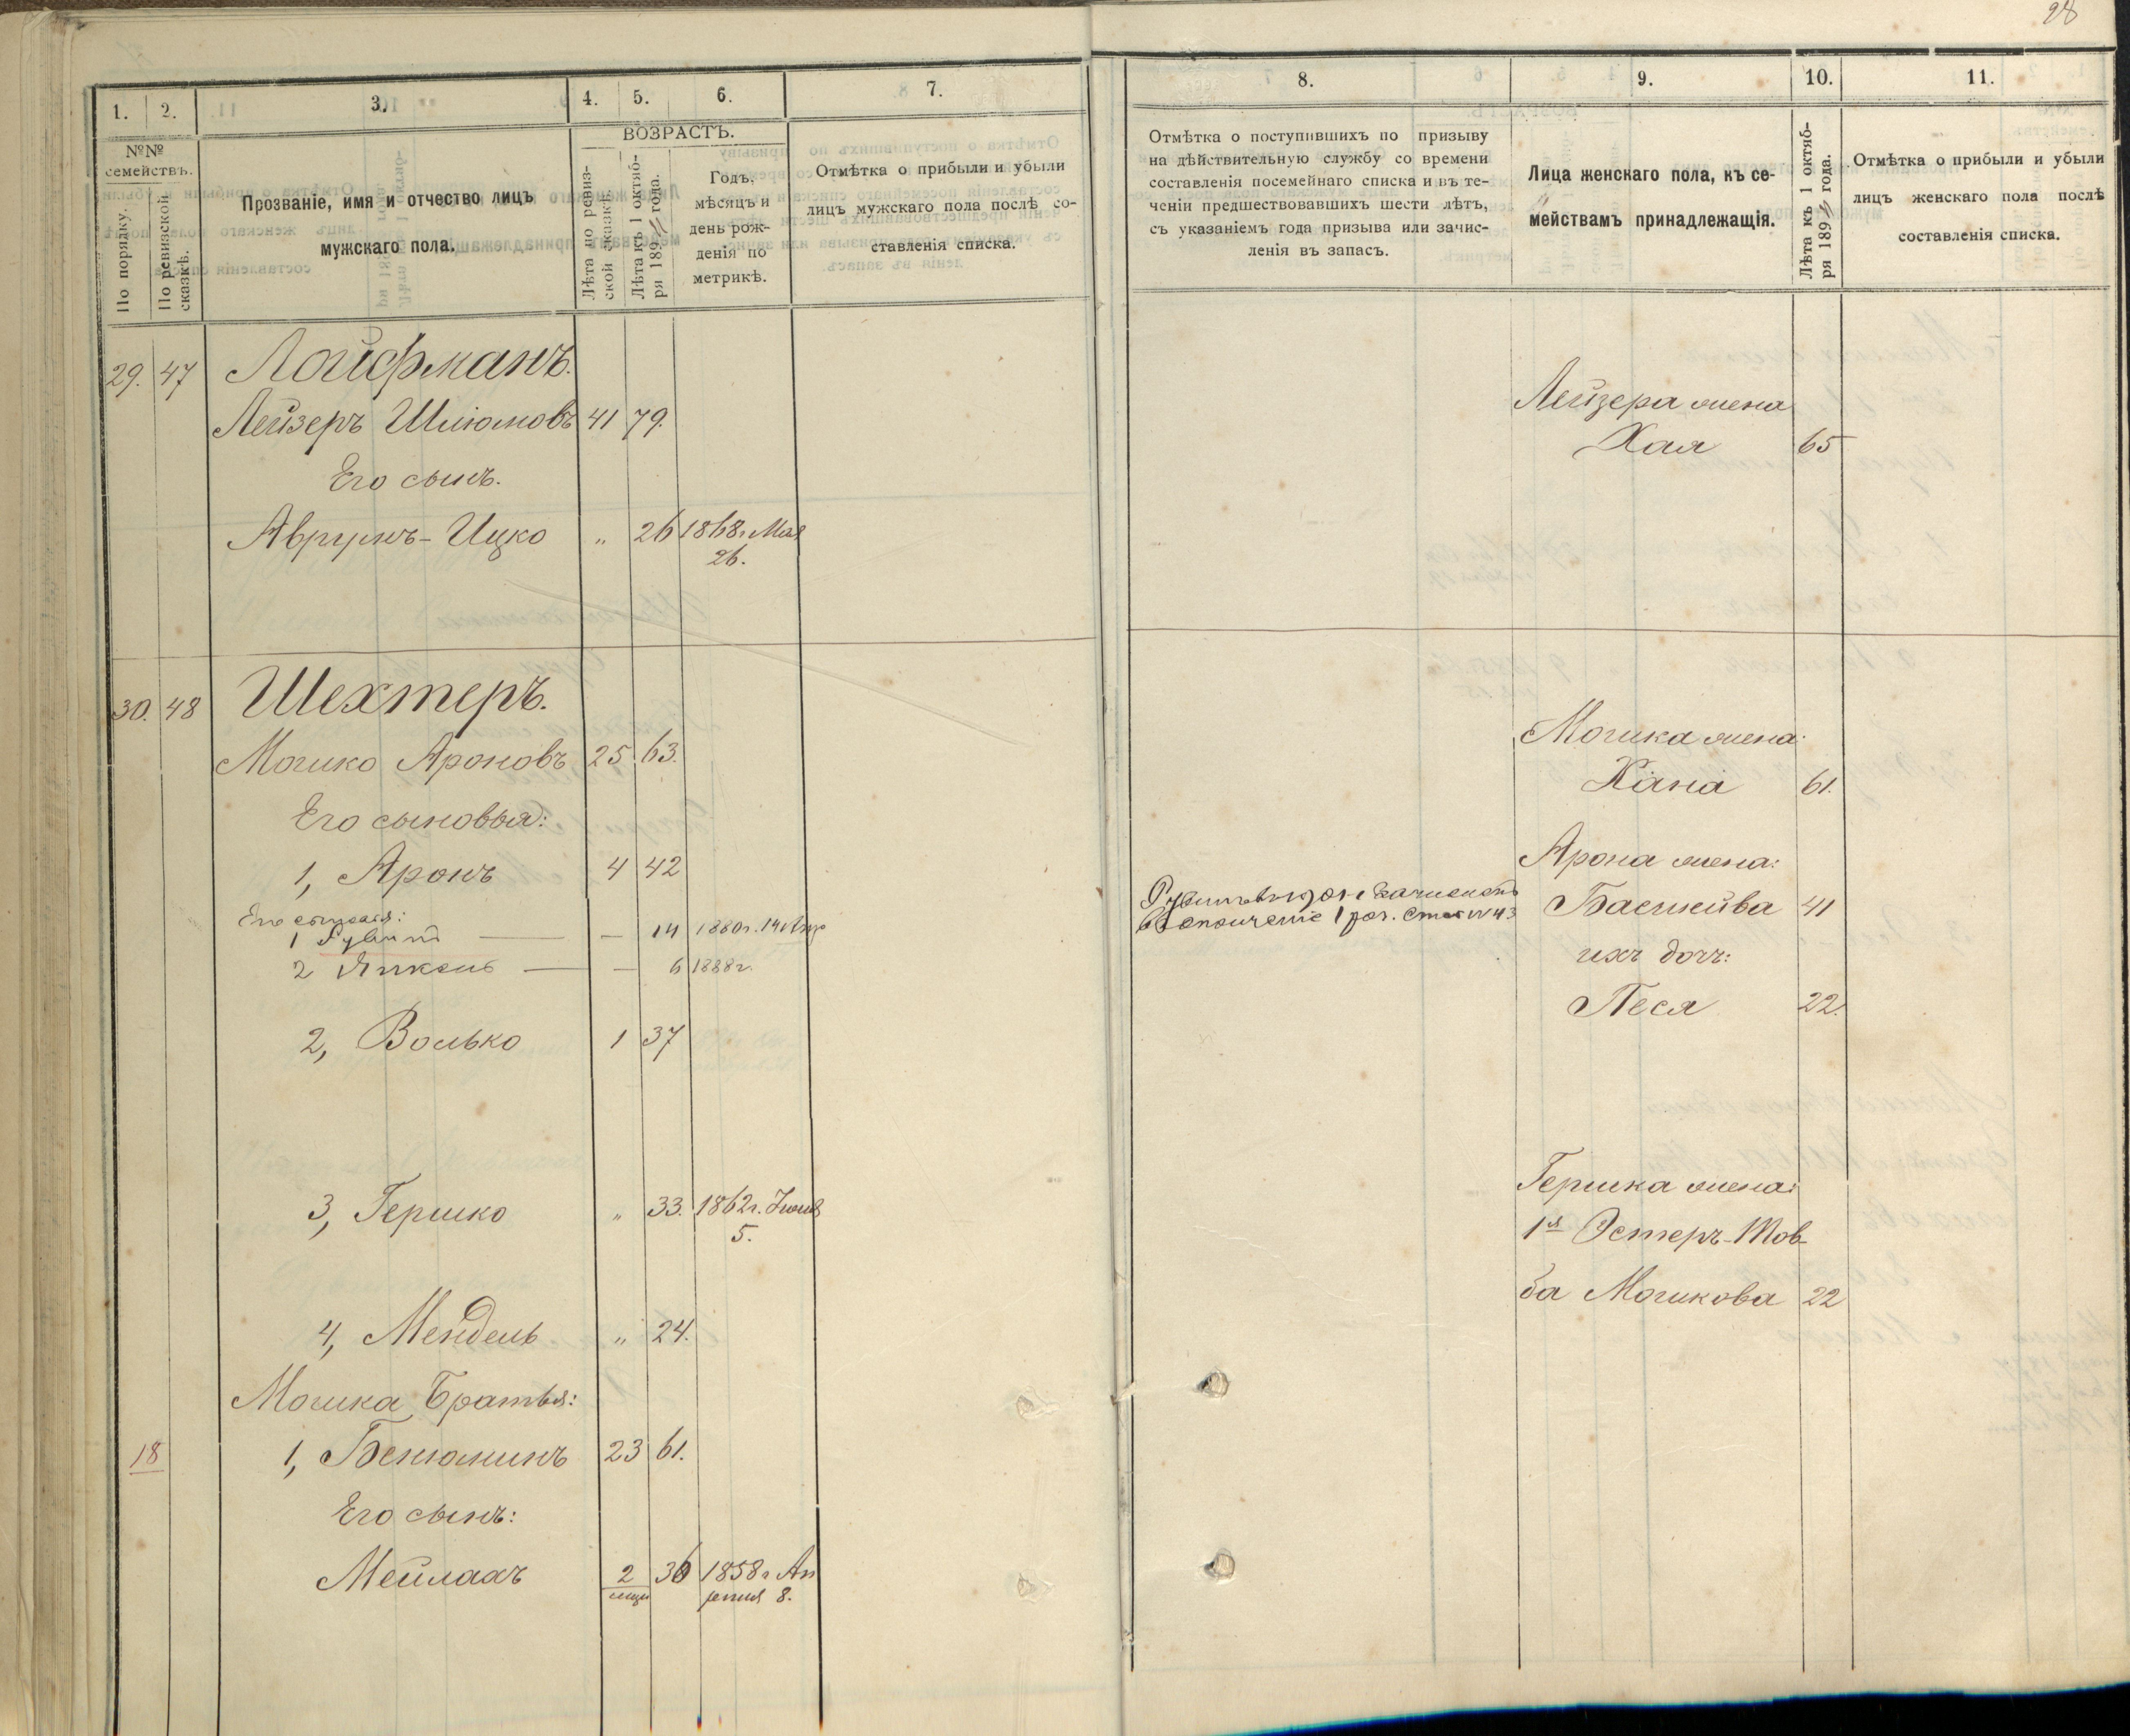 28
1. 2. 3. 4. 5. 6. 7.
№№
семействъ.
По порядку.
По ревизской
сказкѣ.
Прозваніе, имя и отчество лицъ
мужскаго пола.
ВОЗРАСТЪ.
Лѣта по ревиз-
ской сказкѣ.
Лѣта къ 1 октяб-
ря 189 года.
Годъ,
мѣсяцъ и
день рож-
денія по
метрикѣ.
Отмѣтка о прибыли и убыли
лицъ мужскаго пола послѣ со-
ставленія списка.
29. 47 Лойфманъ.
Лейзеръ Шлiомовъ 41 79.
Его сынъ.
Аврумъ-Ицко " 26 1868г. Мая
26.
30. 48 Шехтеръ.
Мошко Ароновъ 25 63.
Его сыновья:
1, Аронъ 4 42
Его сыновья:
1 Рувинъ — — 14 1880г. 14 Апр
2 Янкель — — 6 1888г.
2, Волько 1 37
3, Гершко " 33. 1862г. Іюля
5.
4, Мендель " 24.
Мошка братья:
18 1, Бенюминъ 23 61.
Его сынъ:
Мейлахъ 2 36 1858г Ап
мѣся реля 8.
8. 9. 10. 11.
Отмѣтка о поступившихъ по призыву
на дѣйствительную службу со времени
составленія посемейнаго списка и въ те-
ченіи предшествовавшихъ шести лѣтъ,
съ указаніемъ года призыва или зачис-
ленія въ запасъ.
Лица женскаго пола, къ се-
мействамъ принадлежащія.
Лѣта къ 1 октяб-
ря 189 года.
Отмѣтка о прибыли и убыли
лицъ женскаго пола послѣ
составленія списка.
Лейзера жена
Хая 65
Мошка жена:
Хана 61.
Арона жена:
Рувинъ зачисленъ
въ ополченіе 1 раз. № 43
Басшейва 41
ихъ дочь:
Песя 22.
Гершка жена:
1я Эстеръ-Тов-
ба Мошкова 22